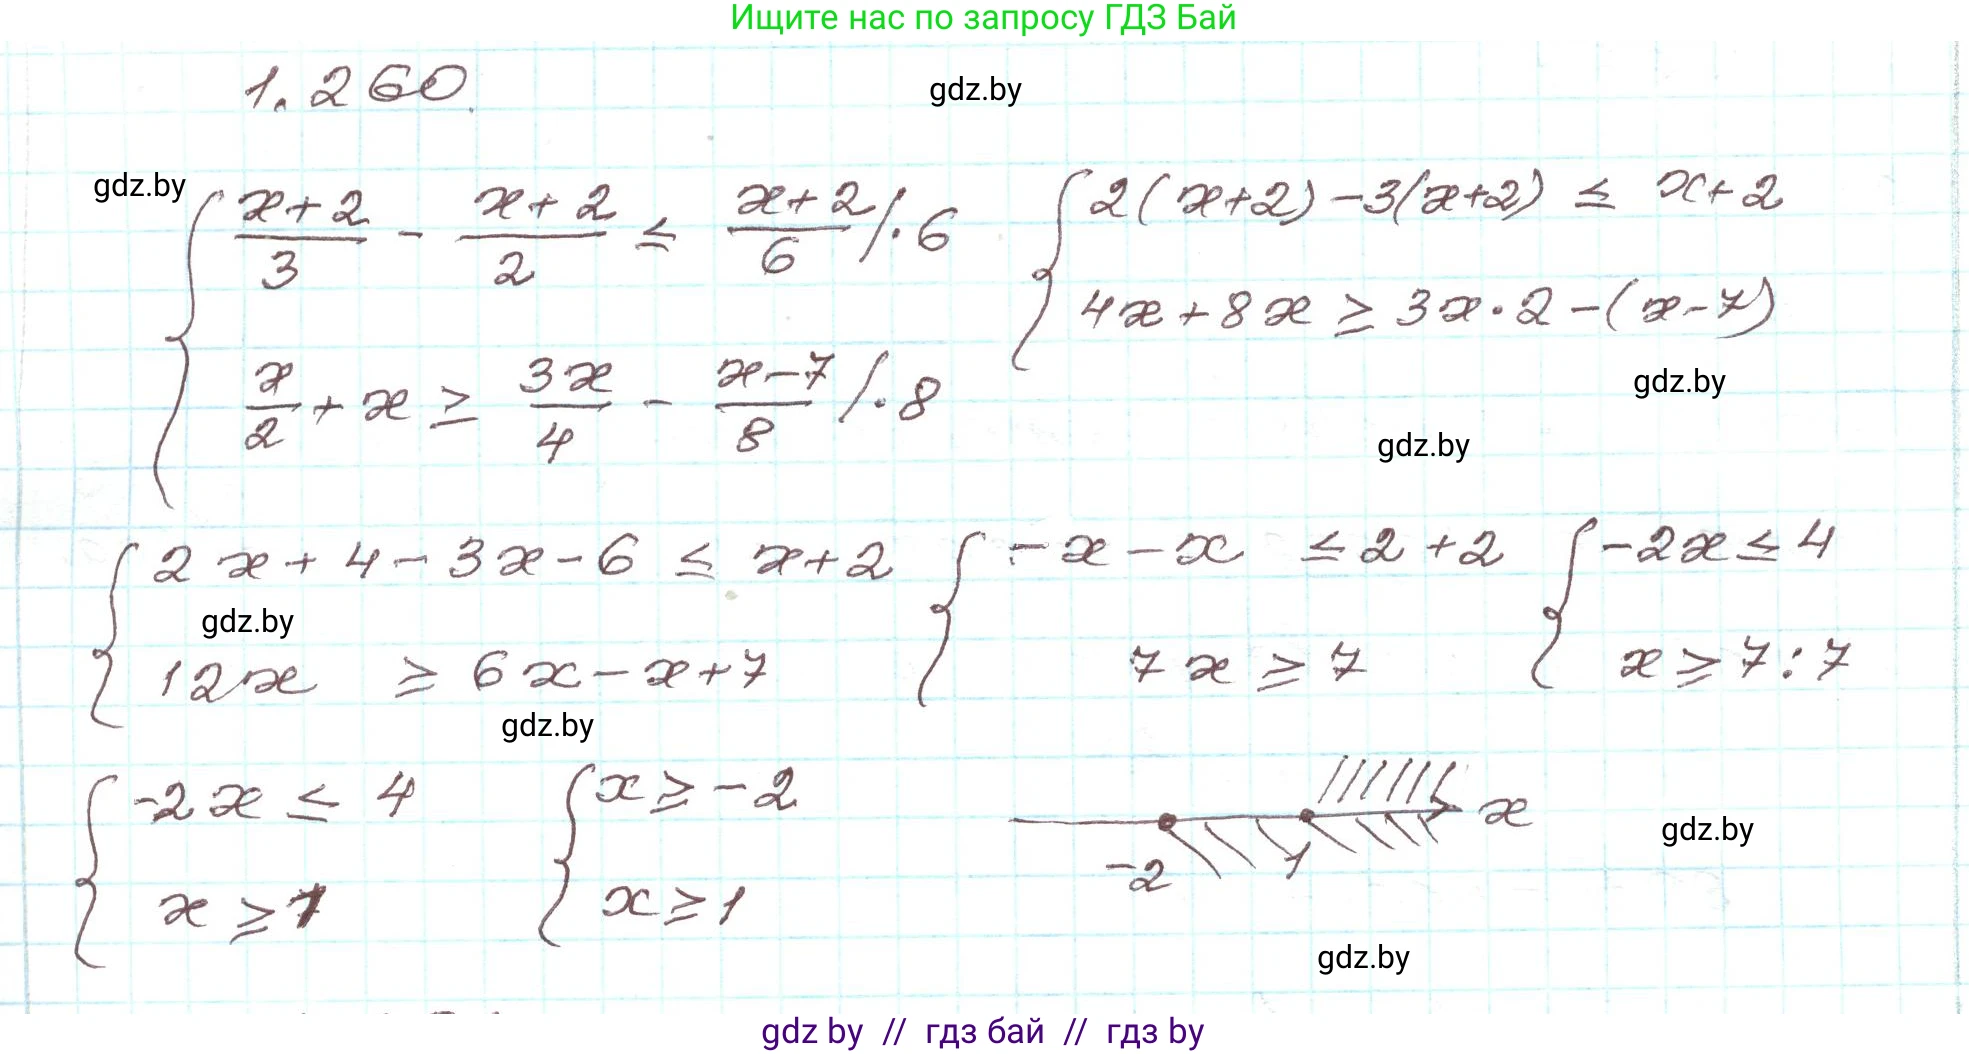 Ищите нас по запросу ГДЗ Бай
1.260.
gdz.by
gdz.by
{ (x+2)/3 - (x+2)/2 ≤ (x+2)/6 /·6
x/2 + x ≥ 3x/4 - (x-7)/8 /·8
{ 2(x+2) - 3(x+2) ≤ x+2
4x + 8x ≥ 3x·2 - (x-7)
gdz.by
gdz.by
{ 2x + 4 - 3x - 6 ≤ x+2
12x ≥ 6x - x + 7
{ -x - x ≤ 2 + 2
7x ≥ 7
{ -2x ≤ 4
x ≥ 7:7
gdz.by
gdz.by
{ -2x ≤ 4
x ≥ 1
{ x ≥ -2
x ≥ 1
-2 1 x
gdz.by
gdz.by
gdz by // гдз бай // гдз by